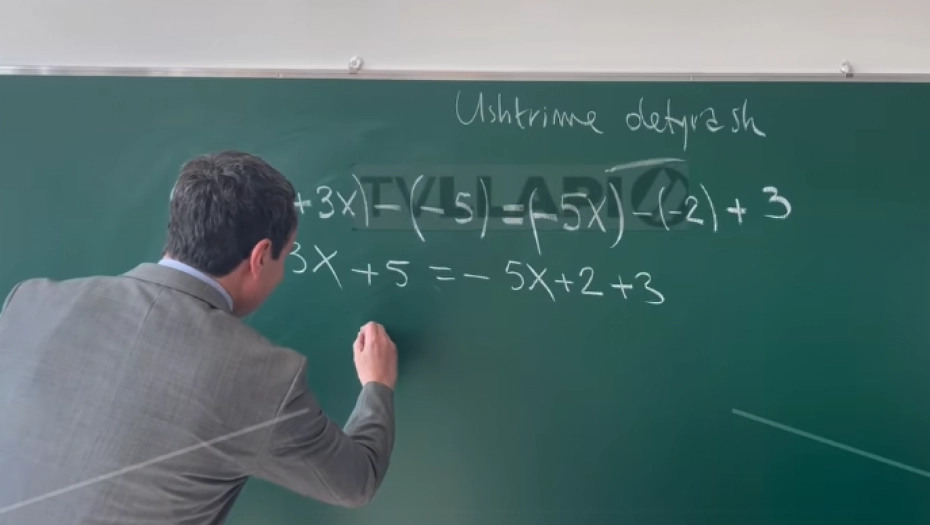 Ushtrime detyrash
TVLLARI
+3x) - (-5) = (-5x) - (-2) + 3
3x + 5 = - 5x + 2 + 3